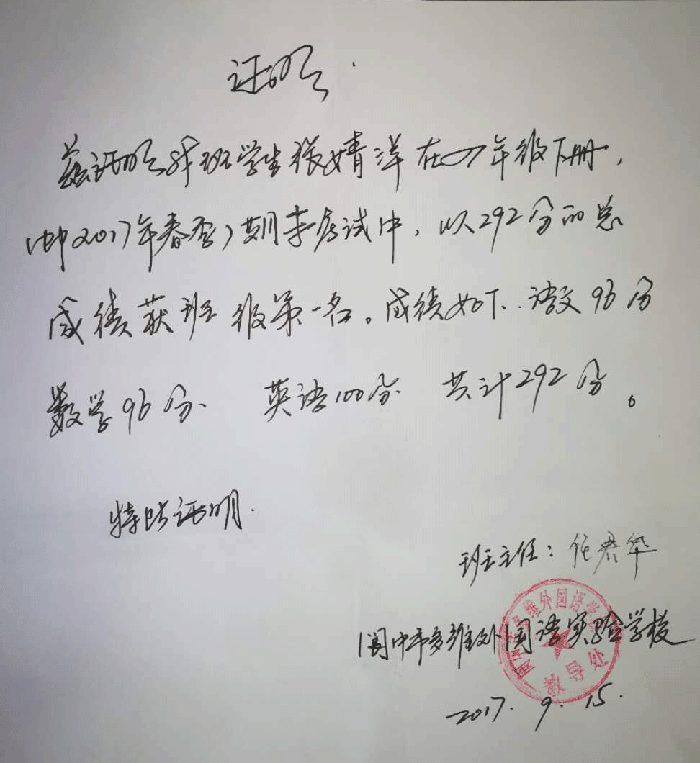 证明
兹证明我班学生张婧洋在一年级下册,
(即2017年春季)期末考试中,以292分的总
成绩获班级第一名。成绩如下:语文96分
数学96分 英语100分 共计292分。
特此证明.
班主任:任君华
阆中市多维外国语实验学校
教导处
2017.9.15.